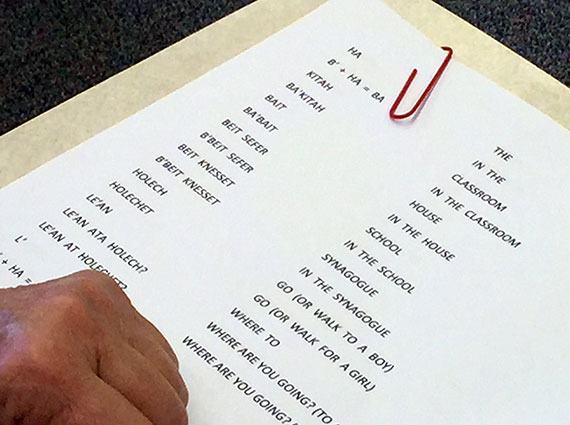 HA THE
B' + HA = BA IN THE
KITAH CLASSROOM
BA'KITAH IN THE CLASSROOM
BAIT HOUSE
BA'BAIT IN THE HOUSE
BEIT SEFER SCHOOL
B'BEIT SEFER IN THE SCHOOL
BEIT KNESSET SYNAGOGUE
B'BEIT KNESSET IN THE SYNAGOGUE
HOLECH GO (OR WALK TO A BOY)
HOLECHET GO (OR WALK FOR A GIRL)
LE'AN WHERE TO
LE'AN ATA HOLECH? WHERE ARE YOU GOING? (TO
LE'AN AT HOLECHET? WHERE ARE YOU GOING?
L'
' + HA =